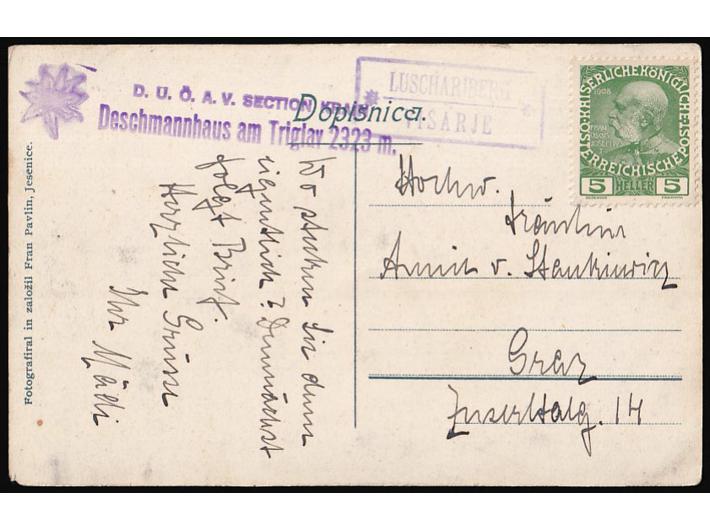 D. U. Ö. A. V. SECTION KRAIN
Deschmannhaus am Triglav 2323 m.
Dopisnica.
LUSCHARIBERG
VIŠARJE
1908
KAISERLICHE KÖNIGLICHE
ÖSTERREICHISCHE POST
5 HELLER 5
Hochw.
Fräulein
v. Stankiewicz
Graz
14
Wo stecken Sie denn
eigentlich? Demnächst
folgt Brief.
Herzliche Grüsse
Ihr Mädi
Fotografiral in založil Fran Pavlin, Jesenice.